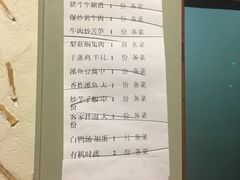 猪牛牛腩酒 1 份 备菜
爆炒黄牛肉 1 份 备菜
牛肉炒苦笋 1 份 备菜
梨菇焖兔肉 1 份 备菜
干蒸鸡半只 1 份 备菜
溪鱼豆腐中 1 份 备菜
香炸溪鱼大 1 份 备菜
炒芋子糍中 1 份 备菜
客家拌面大 1 份 备菜
白鸭汤加蛋 1 只 备菜
有机时蔬 2 份 备菜